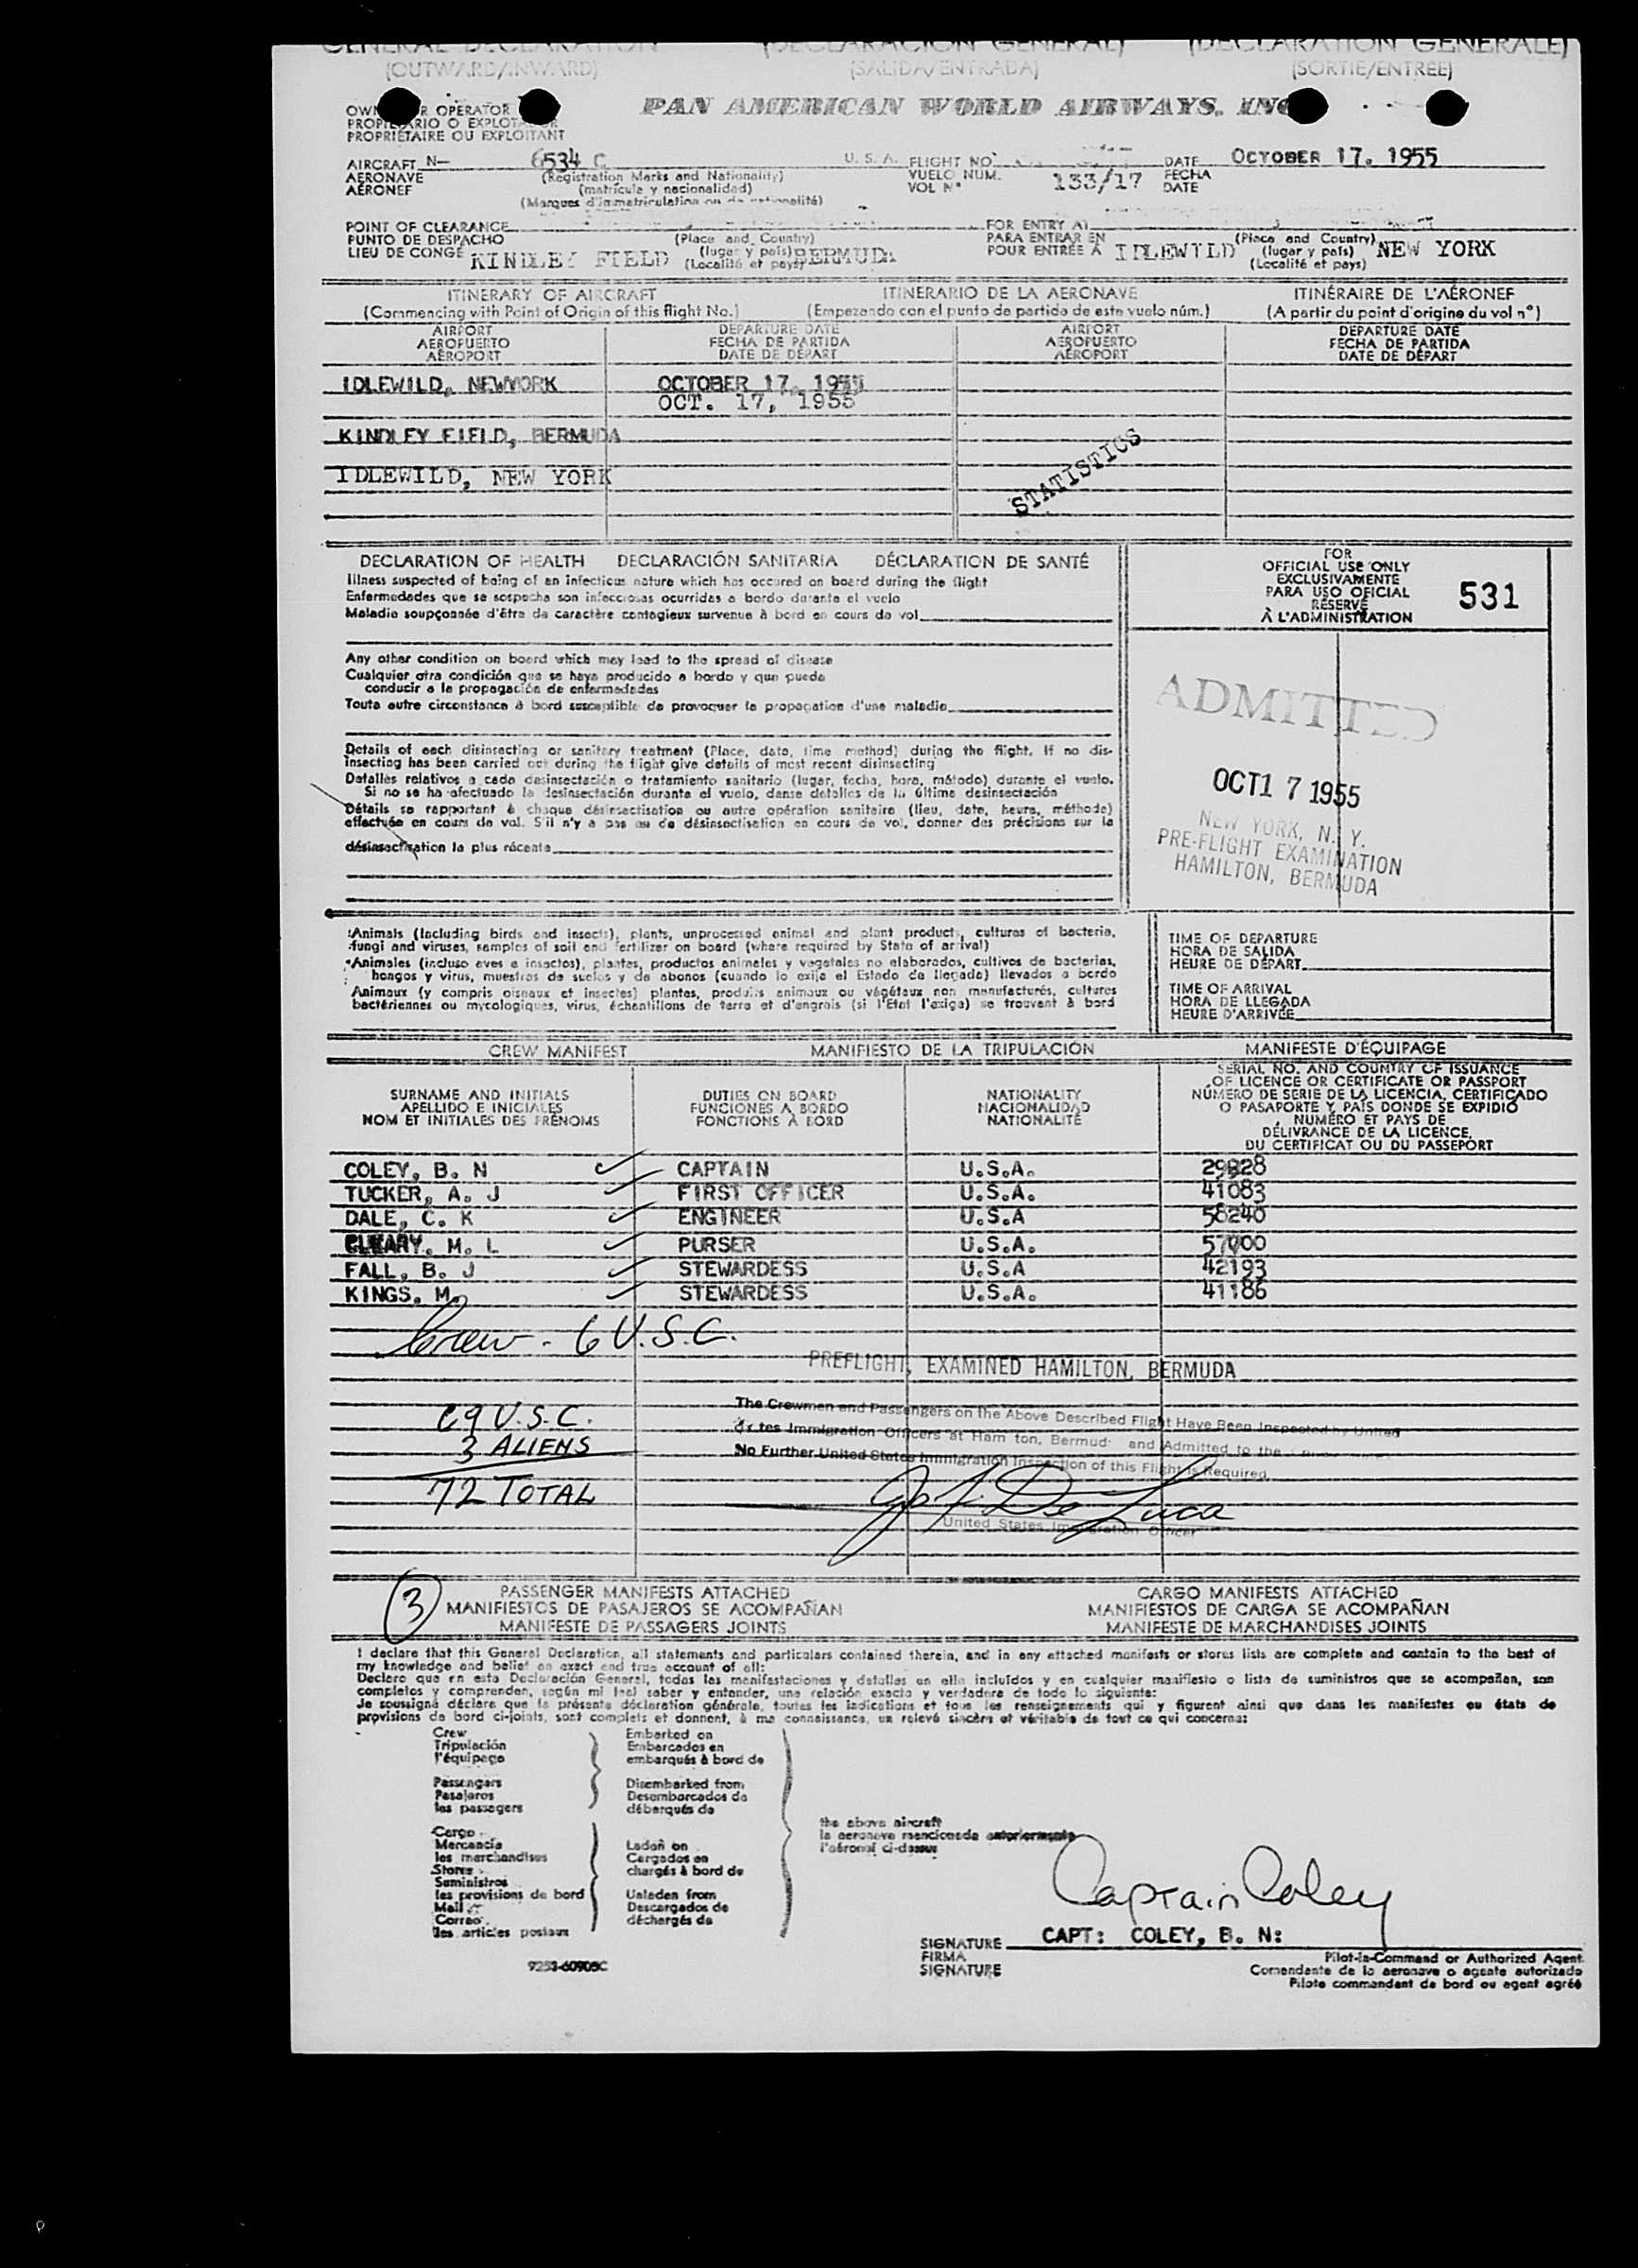 GENERAL DECLARATION (DECLARACIÓN GENERAL) (DÉCLARATION GÉNÉRALE)
(OUTWARD/INWARD) (SALIDA/ENTRADA) (SORTIE/ENTRÉE)
OWNER OR OPERATOR PAN AMERICAN WORLD AIRWAYS, INC
PROPIETARIO O EXPLOTADOR
PROPRIÉTAIRE OU EXPLOITANT
AIRCRAFT N— 6534 C U. S. A. FLIGHT NO. DATE OCTOBER 17. 1955
AERONAVE (Registration Marks and Nationality) VUELO NÚM. 133/17 FECHA
AÉRONEF (matrícula y nacionalidad) VOL Nº DATE
(Marques d'immatriculation ou de nationalité)
POINT OF CLEARANCE FOR ENTRY AT
PUNTO DE DESPACHO (Place and Country) PARA ENTRAR EN (Place and Country)
LIEU DE CONGÉ KINDLEY FIELD (lugar y país) BERMUDA POUR ENTRÉE À IDLEWILD (lugar y país) NEW YORK
(Localité et pays) (Localité et pays)
ITINERARY OF AIRCRAFT ITINERARIO DE LA AERONAVE ITINÉRAIRE DE L'AÉRONEF
(Commencing with Point of Origin of this flight No.) (Empezando con el punto de partida de este vuelo núm.) (A partir du point d'origine du vol nº)
AIRPORT DEPARTURE DATE AIRPORT DEPARTURE DATE
AEROPUERTO FECHA DE PARTIDA AEROPUERTO FECHA DE PARTIDA
AÉROPORT DATE DE DÉPART AÉROPORT DATE DE DÉPART
IDLEWILD, NEWYORK OCTOBER 17, 1955
OCT. 17, 1955
KINDLEY FIELD, BERMUDA
IDLEWILD, NEW YORK
STATISTICS
DECLARATION OF HEALTH DECLARACIÓN SANITARIA DÉCLARATION DE SANTÉ
Illness suspected of being of an infectious nature which has occured on board during the flight
Enfermedades que se sospecha son infecciosas ocurridas a bordo durante el vuelo
Maladie soupçonnée d'être de caractère contagieux survenue à bord en cours de vol
FOR
OFFICIAL USE ONLY
EXCLUSIVAMENTE
PARA USO OFICIAL
RÉSERVÉ
À L'ADMINISTRATION
531
Any other condition on board which may lead to the spread of disease
Cualquier otra condición que se haya producido a bordo y que pueda
conducir a la propagación de enfermedades
Toute autre circonstance à bord susceptible de provoquer la propagation d'une maladie
Details of each disinsecting or sanitary treatment (Place, date, time method) during the flight. If no dis-
insecting has been carried out during the flight give details of most recent disinsecting
Detalles relativos a cada desinsectación o tratamiento sanitario (lugar, fecha, hora, método) durante el vuelo.
Si no se ha efectuado la desinsectación durante el vuelo, danse detalles de la última desinsectación
Détails se rapportant à chaque désinsectisation ou autre opération sanitaire (lieu, date, heure, méthode)
effectuée en cours de vol. S'il n'y a pas eu de désinsectisation en cours de vol, donner des précisions sur la
désinsectisation la plus récente
ADMITTED
OCT 1 7 1955
NEW YORK, N. Y.
PRE-FLIGHT EXAMINATION
HAMILTON, BERMUDA
Animals (Including birds and insects), plants, unprocessed animal and plant products, cultures of bacteria,
fungi and viruses, samples of soil and fertilizer on board (where required by State of arrival)
Animales (incluso aves e insectos), plantas, productos animales y vegetales no elaborados, cultivos de bacterias,
hongos y virus, muestras de suelos y de abonos (cuando lo exija el Estado de llegada) llevados a bordo
Animaux (y compris oiseaux et insectes) plantes, produits animaux ou végétaux non manufacturés, cultures
bactériennes ou mycologiques, virus, échantillons de terre et d'engrais (si l'Etat l'exige) se trouvant à bord
TIME OF DEPARTURE
HORA DE SALIDA
HEURE DE DÉPART
TIME OF ARRIVAL
HORA DE LLEGADA
HEURE D'ARRIVÉE
CREW MANIFEST MANIFIESTO DE LA TRIPULACIÓN MANIFESTE D'ÉQUIPAGE
SURNAME AND INITIALS
APELLIDO E INICIALES
NOM ET INITIALES DES PRÉNOMS
DUTIES ON BOARD
FUNCIONES A BORDO
FONCTIONS À BORD
NATIONALITY
NACIONALIDAD
NATIONALITÉ
SERIAL NO. AND COUNTRY OF ISSUANCE
OF LICENCE OR CERTIFICATE OR PASSPORT
NÚMERO DE SERIE DE LA LICENCIA, CERTIFICADO
O PASAPORTE Y PAÍS DONDE SE EXPIDIÓ
NUMÉRO ET PAYS DE
DÉLIVRANCE DE LA LICENCE,
DU CERTIFICAT OU DU PASSEPORT
COLEY, B. N CAPTAIN U.S.A. 29828
TUCKER, A. J FIRST OFFICER U.S.A. 41083
DALE, C. K ENGINEER U.S.A 58240
CLEARY. M. L PURSER U.S.A. 57000
FALL, B. J STEWARDESS U.S.A 42193
KINGS. M. STEWARDESS U.S.A. 41186
Crew - 6 U.S.C.
PREFLIGHT, EXAMINED HAMILTON, BERMUDA
69 U.S.C.
3 ALIENS
72 TOTAL
The Crewmen and Passengers on the Above Described Flight Have Been Inspected by United
States Immigration Officers at Hamilton, Bermuda and Admitted to the
No Further United States Immigration Inspection of this Flight is Required
United States Immigration Officer
3
PASSENGER MANIFESTS ATTACHED CARGO MANIFESTS ATTACHED
MANIFIESTOS DE PASAJEROS SE ACOMPAÑAN MANIFIESTOS DE CARGA SE ACOMPAÑAN
MANIFESTE DE PASSAGERS JOINTS MANIFESTE DE MARCHANDISES JOINTS
I declare that this General Declaration, all statements and particulars contained therein, and in any attached manifests or stores lists are complete and contain to the best of
my knowledge and belief an exact and true account of all:
Declaro que en esta Declaración General, todas las manifestaciones y detalles en ella incluidos y en cualquier manifiesto o lista de suministros que se acompañan, son
completos y comprenden, según mi leal saber y entender, una relación exacta y verdadera de todo lo siguiente:
Je soussigné déclare que la présente déclaration générale, toutes les indications et tous les renseignements qui y figurent ainsi que dans les manifestes ou états de
provisions de bord ci-joints, sont complets et donnent, à ma connaissance, un relevé sincère et véritable de tout ce qui concerne:
Crew
Tripulación
l'équipage
Passengers
Pasajeros
les passagers
Cargo
Mercancía
les marchandises
Stores
Suministros
les provisions de bord
Mail
Correo
les articles postaux
Embarked on
Embarcados en
embarqués à bord de
Disembarked from
Desembarcados de
débarqués de
Laden on
Cargados en
chargés à bord de
Unladen from
Descargados de
déchargés de
the above aircraft
la aeronave mencionada anteriormente
l'aéronef ci-dessus
Captain Coley
SIGNATURE CAPT: COLEY, B. N:
FIRMA
SIGNATURE
Pilot-in-Command or Authorized Agent
Comandante de la aeronave o agente autorizado
Pilote commandant de bord ou agent agréé